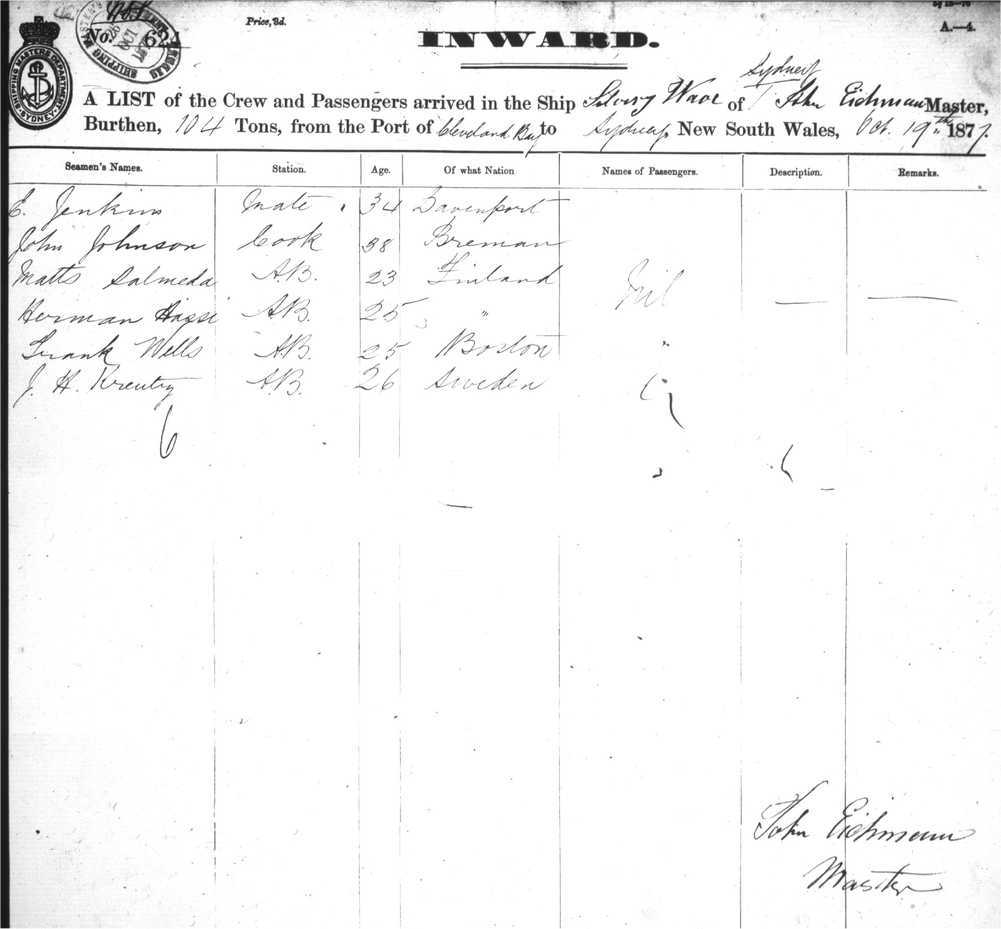 Price, 3d.
A.—4.
No. 62
SHIPPING MASTER'S DEPARTMENT SYDNEY
INWARD.
Sydney
A LIST of the Crew and Passengers arrived in the Ship Silvery Wave of John Eichman Master,
Burthen, 104 Tons, from the Port of Cleveland Bay to Sydney, New South Wales, Oct. 19th 1877.
Seamen's Names. Station. Age. Of what Nation Names of Passengers. Description. Remarks.
E. Jenkins Mate 34 Davenport
John Johnson Cook 38 Breman
Matts Salmeda A.B. 23 Finland Nil — —
Herman A.B. 25 "
Frank Wells A.B. 25 Boston "
J. H. A.B. 26 Sweden
6
John Eichmann
Master